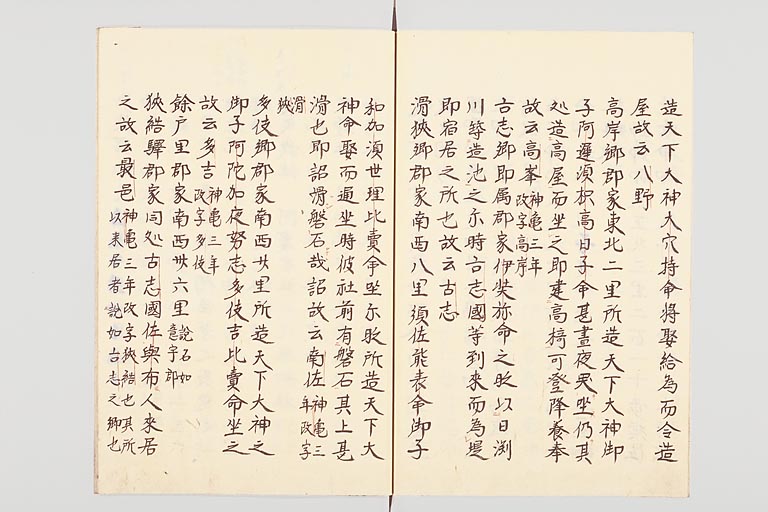 造天下大神大穴持命将娶給為而令造
屋故云八野
高岸郷郡家東北二里所造天下大神御
子阿遅須枳高日子命甚晝夜哭坐仍其
処造高屋而坐之即建高椅可登降養奉
故云高峯神亀三年改字高岸
古志郷即属郡家伊弉弥命之時以日渕
川築造池之尓時古志國等到来而為堤
即宿居之所也故云古志
滑狭郷郡家南西八里須佐能袁命御子
和加須世理比賣命坐尓時所造天下大
神命娶而通坐時彼社前有磐石其上甚
滑也即詔滑磐石哉詔故云南佐神亀三年改字
滑狭
多伎郷郡家南西廿里所造天下大神之
御子阿陀加夜努志多伎吉比賣命坐之
故云多吉神亀三年改字多伎
餘戸里郡家南西卅六里説名如意宇郡
狭結驛郡家同処古志國佐與布人来居
之故云最邑神亀三年改字狭結也其所以来居者説如古志之郷也